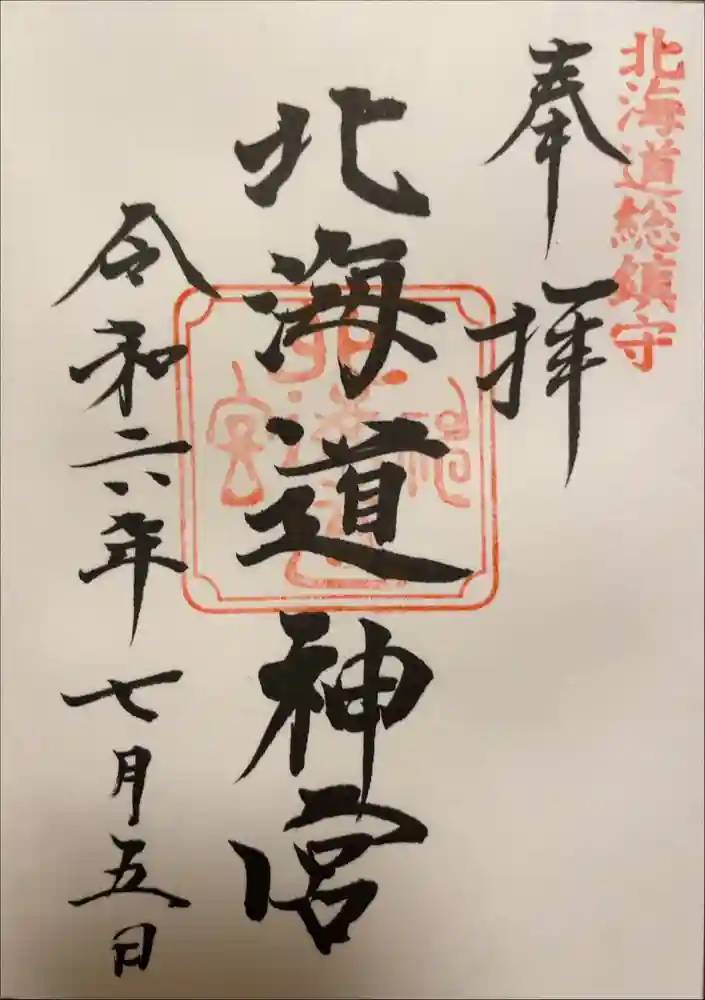 北海道総鎮守
奉拝
北海道神宮
令和六年七月五日